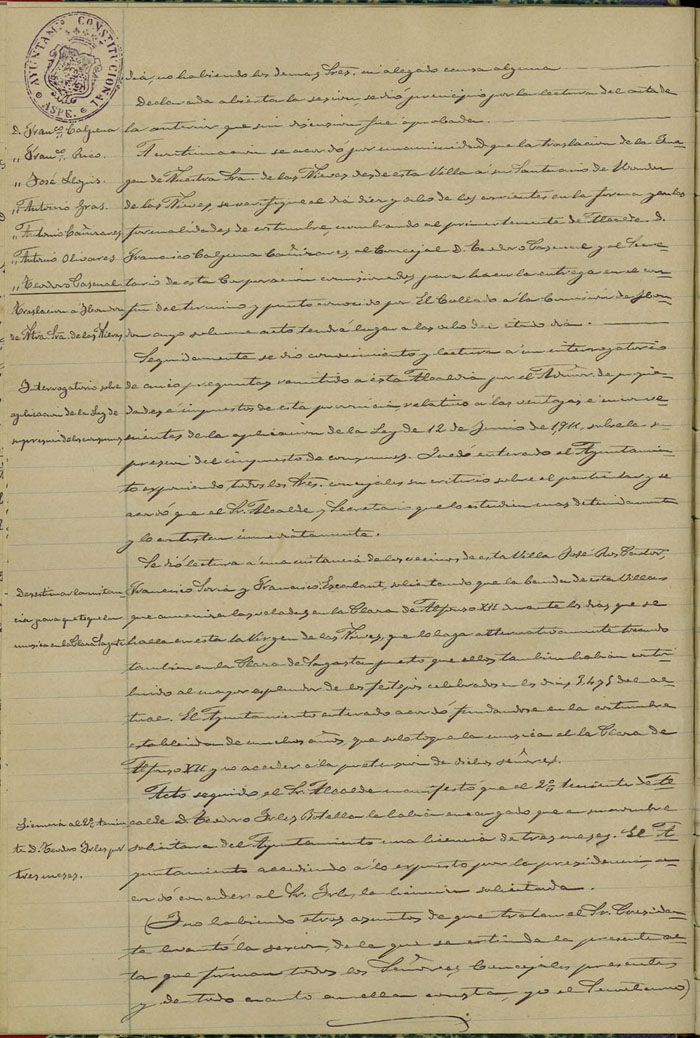 AYUNTAM. CONSTITUCIONAL
ASPE.
dia, no habiendo los demas Sres. ni alegado causa alguna
Declarada abierta la sesion, se dió principio por la lectura del acta de
la anterior que sin discusion fue aprobada.
A continuacion se acordó por unanimidad que la traslacion de la Ima-
gen de Nuestra Sra. de las Nieves desde esta Villa á su Santuario de Hondon
de las Nieves, se verifique el dia diez y ocho de los corrientes en la forma y con las
formalidades de costumbre, nombrando al primer teniente de Alcalde D.
Francisco Calpena Cañizares, al Concejal D. Teodoro Pascual y el Secre-
tario de esta Corporacion comisionados para hacer la entrega en el con-
fin del termino y punto conocido por El Collado á la Comision de Hon-
don cuyo solemne acto tendrá lugar a las ocho del citado dia.
Seguidamente se dió conocimiento y lectura á un interrogatorio
de cinco preguntas remitido a esta Alcaldia por el Admor. de propie-
dades é impuestos de esta provincia, relativo á las ventajas é inconve-
nientes de la aplicacion de la Ley de 12 de Junio de 1911, sobre la su-
presion del impuesto de consumos. Quedó enterado el Ayuntamien-
to exponiendo todos los Sres. concejales su criterio sobre el particular y se
acordó que el Sr. Alcalde y Secretario que lo estudien mas detenidamente
y lo contesten inmediatamente.
Se dió lectura á una instancia de los vecinos de esta Villa José Pastor,
Francisco Soria y Francisco Escolano, solicitando que la banda de esta Villa
que ameniza las veladas en la Plaza de Alfonso XII durante los dias que se
halla en esta la Virgen de las Nieves, que lo haga alternativamente tocando
tambien en la Plaza de Sagasta puesto que ellos tambien habian contri-
buido al mayor esplendor de los festejos celebrados en los dias 3, 4 y 5 del ac-
tual. El Ayuntamiento enterado acordó fundandose en la costumbre
establecida de muchos años, que solo toque la musica el la Plaza de
Alfonso XII y no acceder á la pretension de dichos señores.
Acto seguido el Sr. Alcalde manifestó que el 2º. teniente de Al-
calde D. Teodoro Irles Botella le habia encargado que en su nombre
solicitara del Ayuntamiento una licencia de tres meses. El A-
yuntamiento accediendo á lo expuesto por la presidencia, a-
cordó conceder al Sr. Irles la licencia solicitada.
(Y no habiendo otros asuntos de que tratar el Sr. Presiden-
te levantó la sesion, de la que se extiende la presente ac-
ta que firman todos los Señores Concejales presentes
y de todo cuanto en ella consta yo el Secretario)
D. Franco. Calpena
" Franco. Rico.
" José
" Antonio Gras.
" Antonio Cañizares
" Antonio Olivares
" Teodoro Pascual
Traslacion á Hondon
de Ntra. Sra. de las Nieves
Interrogatorio sobre
aplicacion de la Ley de
supresion del consumos
Desestimar la instan-
cia para que toque la
musica en la Plaza Sagasta
Licencia al 2º. tenien-
te D. Teodoro Irles por
tres meses.